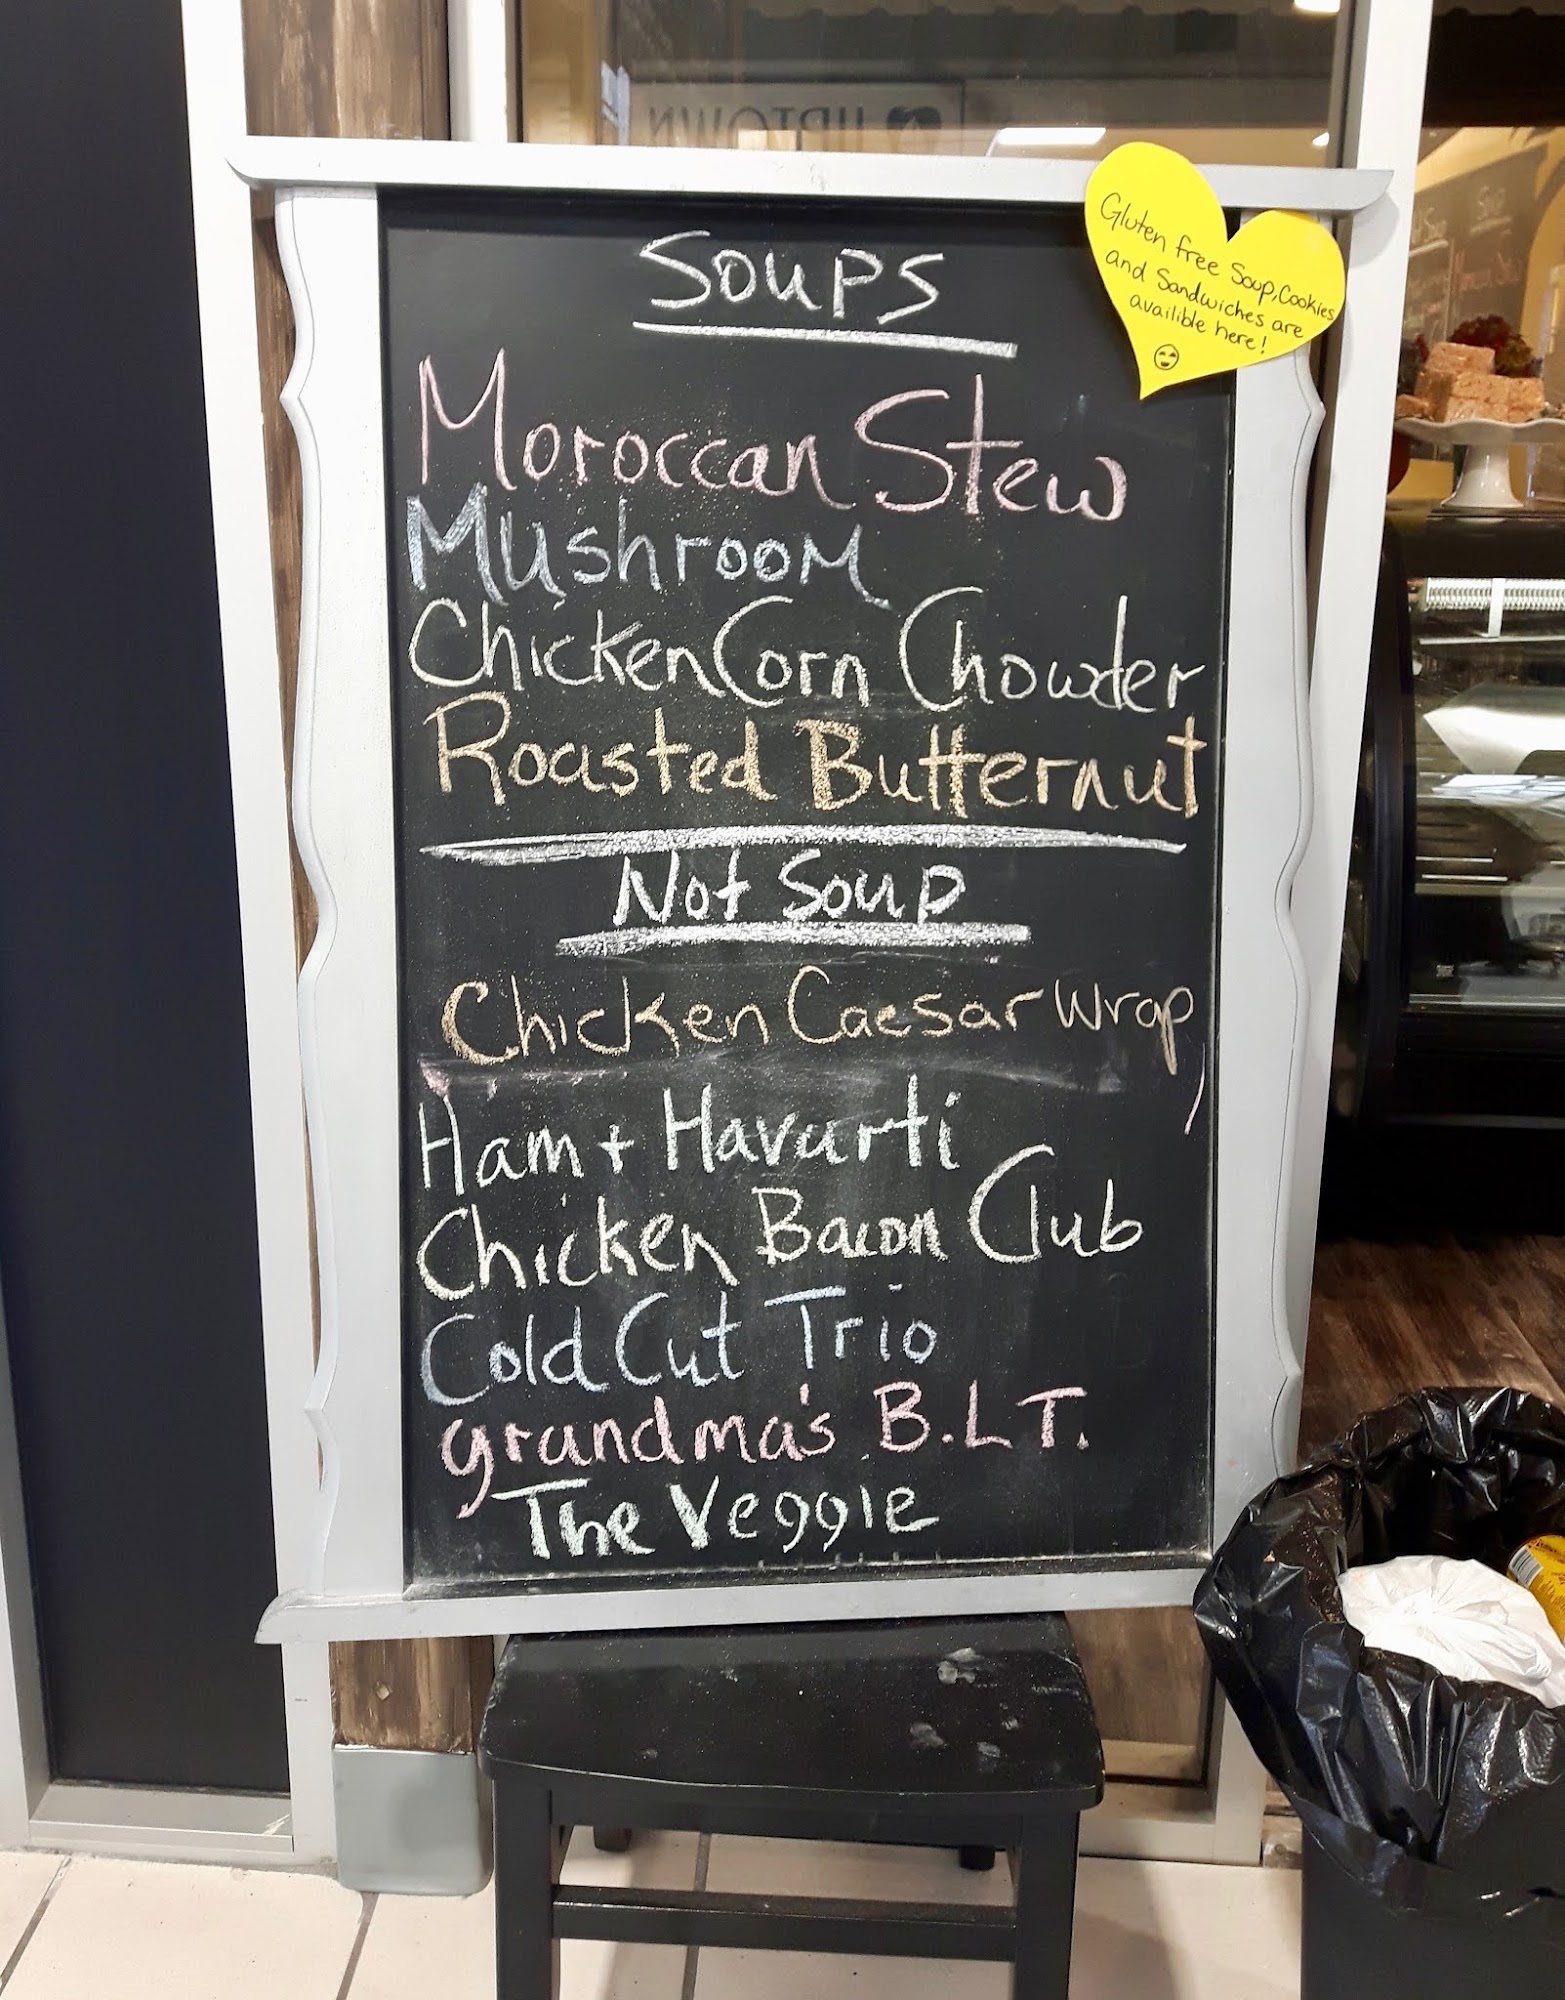 UPTOWN
Gluten free Soup, Cookies
and Sandwiches are
availible here!
Soups
Moroccan Stew
Mushroom
Chicken Corn Chowder
Roasted Butternut
Not Soup
Chicken Caesar Wrap
Ham + Havarti
Chicken Bacon Club
Cold Cut Trio
grandma's B.L.T.
The Veggie